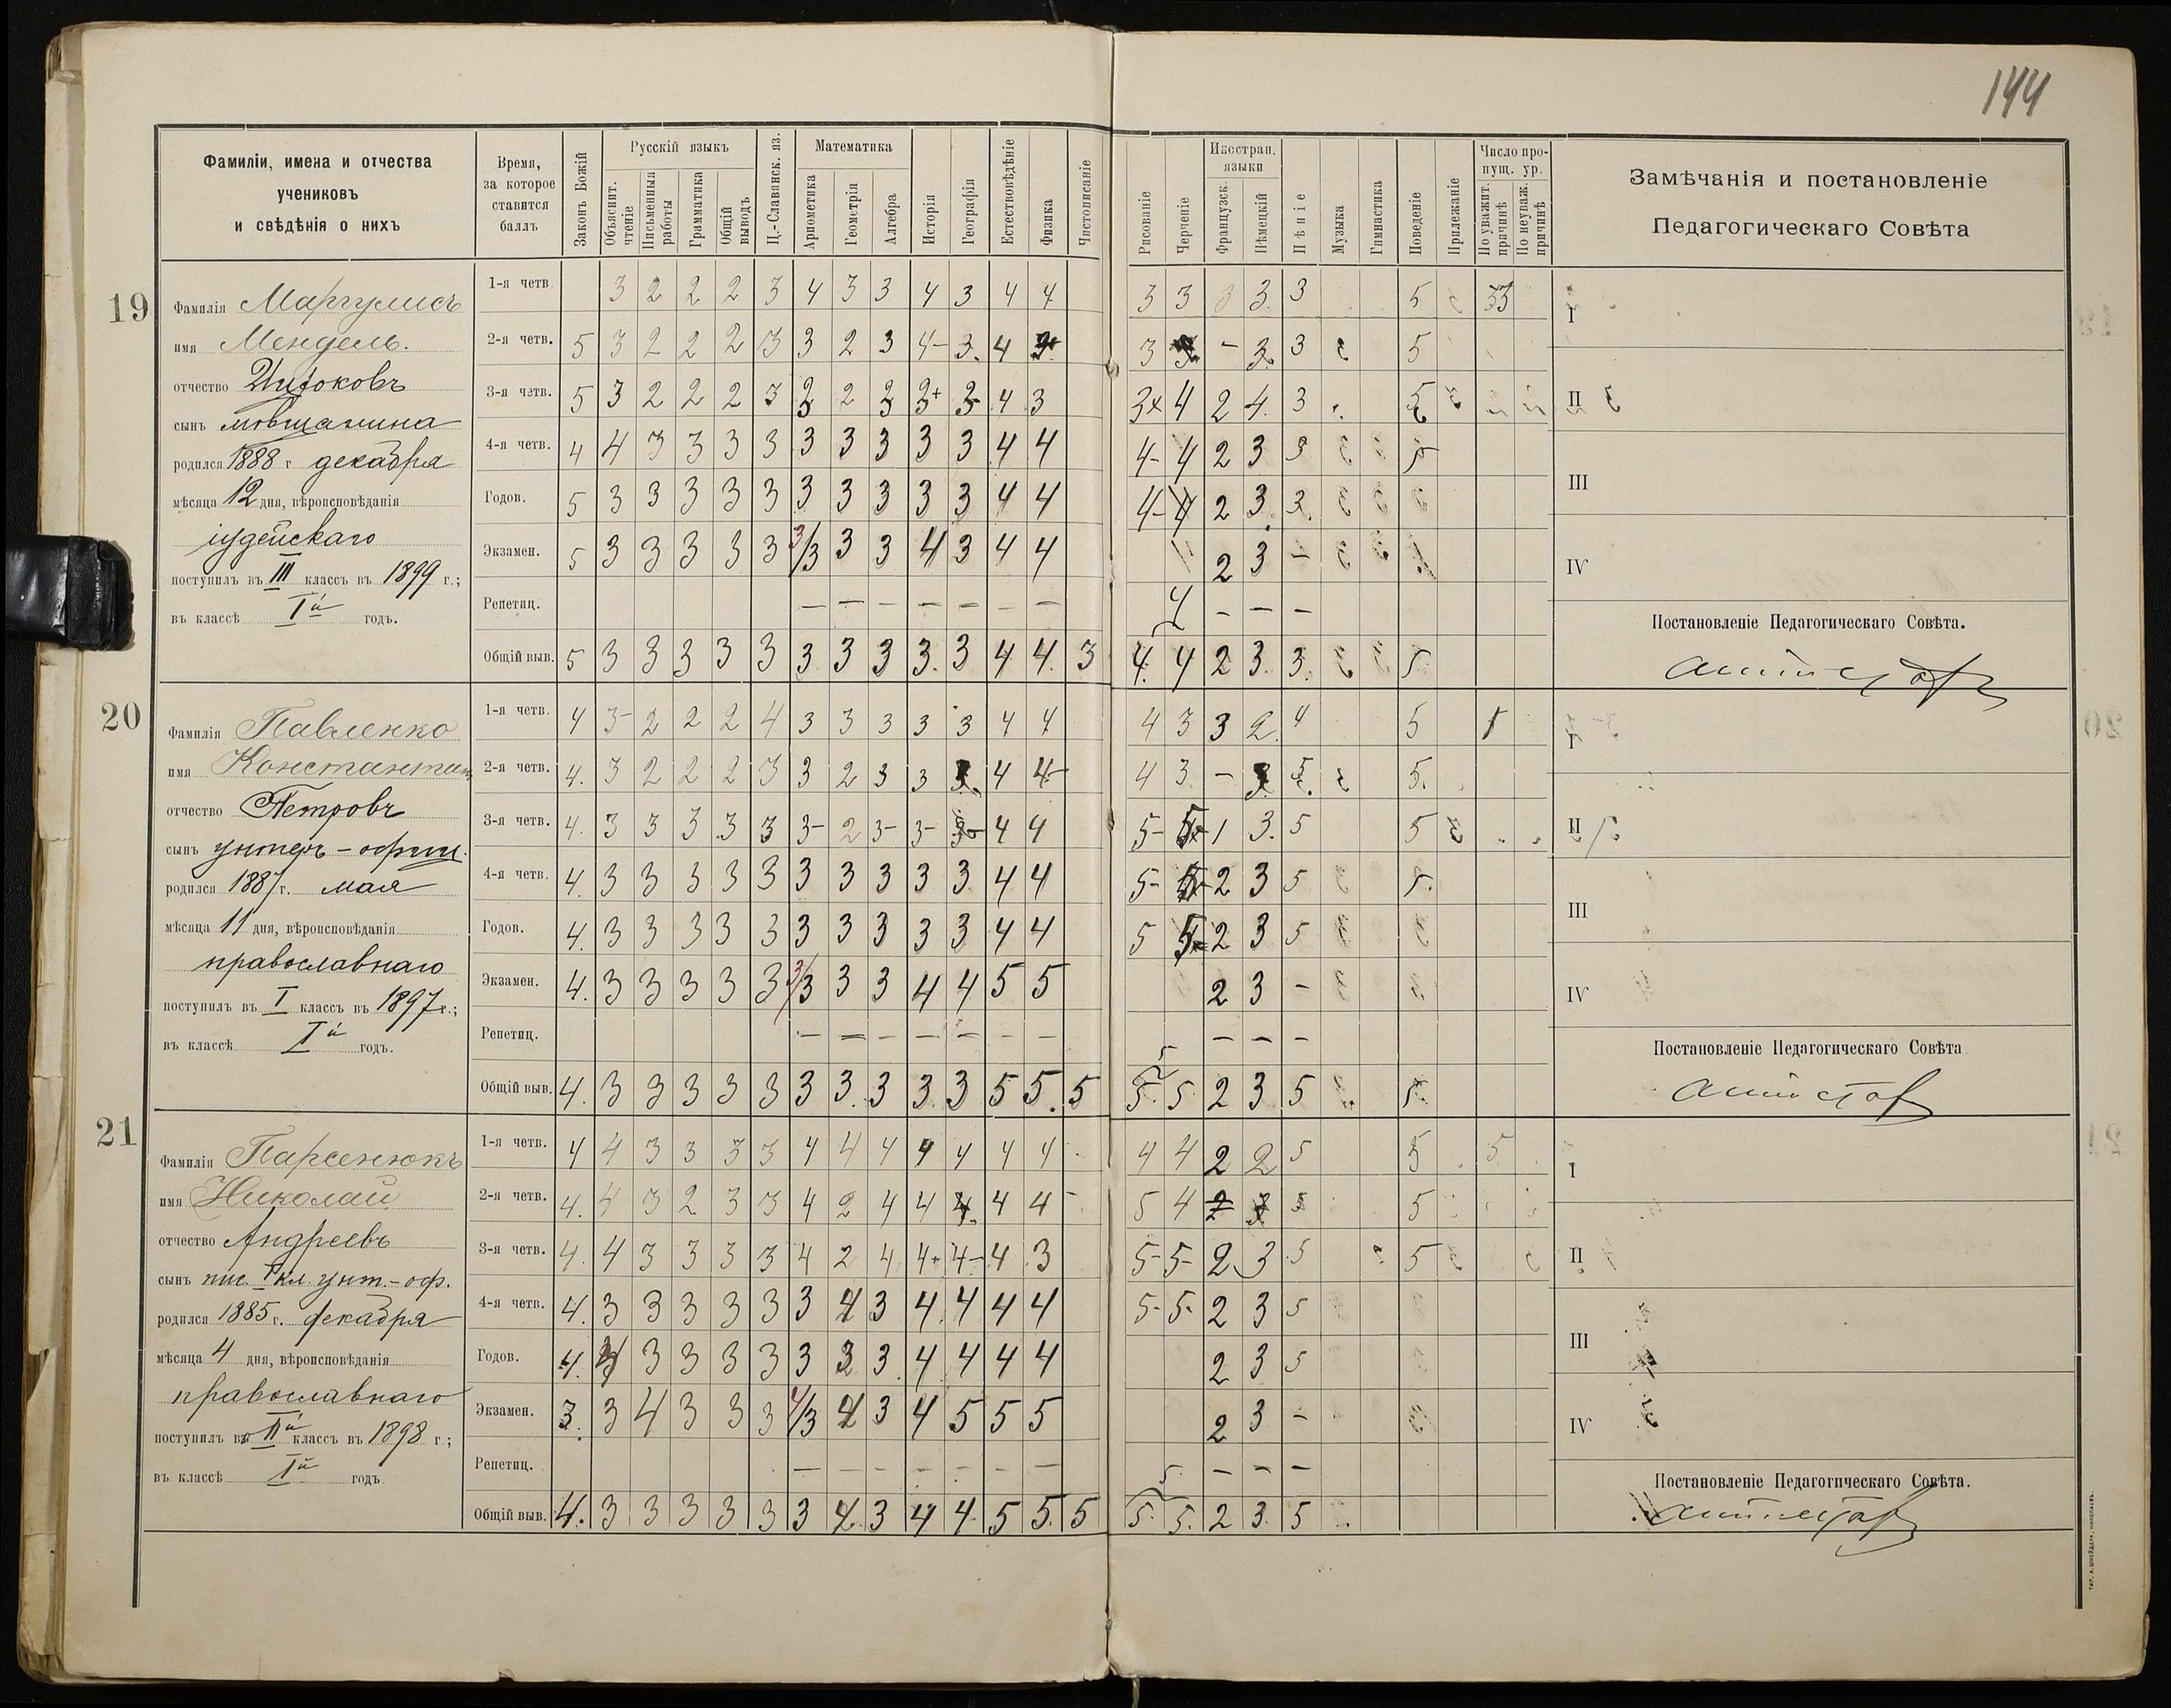 144
Фамиліи, имена и отчества
учениковъ
и свѣдѣнія о нихъ
Время,
за которое
ставится
баллъ
Законъ Божій
Русскій языкъ
Объяснит. чтеніе
Письменныя работы
Грамматика
Общій выводъ
Ц.-Славянск. яз.
Математика
Ариѳметика
Геометрія
Алгебра
Исторія
Географія
Естествовѣдѣніе
Физика
Чистописаніе
Рисованіе
Черченіе
Иностран. языки
Французск.
Нѣмецкій
Пѣніе
Музыка
Гимнастика
Поведеніе
Прилежаніе
Число пропущ. ур.
По уважит. причинѣ
По неуваж. причинѣ
Замѣчанія и постановленіе
Педагогическаго Совѣта
19
Фамилія Маргулисъ
имя Мендель.
отчество
сынъ мѣщанина
родился 1888 г декабря
мѣсяца 12 дня, вѣроисповѣданія
іудейскаго
поступилъ въ III классъ въ 1899 г.;
въ классѣ Iй годъ.
1-я четв 3 2 2 2 3 4 3 3 4 3 4 4 3 3 3 3. 3 5 33
2-я четв. 5 3 2 2 2 3 3 2 3 4- 3. 4 3 - 3. 3 5
3-я четв. 5 3 2 2 2 3 3 2 3 3+ 3- 4 3 3× 4 2 4. 3 5
4-я четв. 4 4 3 3 3 3 3 3 3 3 3 4 4 4- 4 2 3 3 5
Годов. 5 3 3 3 3 3 3 3 3 3 3 4 4 4- 4 2 3. 3.
Экзамен. 5 3 3 3 3 3 3/3 3 3 4 3 4 4 2 3 -
Репетиц. — — — — — — — 4 - — —
Общій выв. 5 3 3 3 3 3 3 3 3 3. 3 4 4. 3 4. 4 2 3. 3. 5.
I
II
III
IV
Постановленіе Педагогическаго Совѣта.
аттестов
20
Фамилія Павленко
имя Константин
отчество Петровъ
сынъ унтеръ-офиц.
родился 1887 г. мая
мѣсяца 11 дня, вѣроисповѣданія
православнаго
поступилъ въ I классъ въ 1897 г.;
въ классѣ Iй годъ.
1-я четв. 4 3- 2 2 2 4 3 3 3 3 3 4 4 4 3 3 2. 4 5 1
2-я четв. 4. 3 2 2 2 3 3 2 3 3 3. 4 4- 4 3 - 3. 5. 5.
3-я четв. 4. 3 3 3 3 3 3- 2 3- 3- 3- 4 4 5- 5- 1 3. 5 5
4-я четв. 4. 3 3 3 3 3 3 3 3 3 3 4 4 5- 5- 2 3 5 5.
Годов. 4. 3 3 3 3 3 3 3 3 3 3 4 4 5 5- 2 3 5
Экзамен. 4. 3 3 3 3 3 3/3 3 3 4 4 5 5 2 3 -
Репетиц. — — — — — — — 5 — — —
Общій выв. 4. 3 3 3 3 3 3 3. 3 3. 3 5 5. 5 5. 5. 2 3 5 5.
I
II
III
IV
Постановленіе Педагогическаго Совѣта
аттестов
21
Фамилія Парсенюкъ
имя Николай
отчество Андреевъ
сынъ пис. I кл. унт.-оф.
родился 1885 г. декабря
мѣсяца 4 дня, вѣроисповѣданія
православнаго
поступилъ во IIй классъ въ 1898 г;
въ классѣ Iй годъ
1-я четв. 4 4 3 3 3 3 4 4 4 4 4 4 4 4 4 2 2 5 5 5
2-я четв. 4. 4 3 2 3 3 4 2 4 4 4. 4 4 - 5 4 2 3 5 5
3-я четв. 4. 4 3 3 3 3 4 2 4 4+ 4- 4 3 5- 5- 2 3 5 5
4-я четв. 4. 3 3 3 3 3 3 3 4. 4 4 4 5- 5- 2 3 5
Годов. 4. 3 3 3 3 3 3 3. 4 4 4 4 2 3 5
Экзамен. 3. 3 4 3 3 3 4/3 3 4 5 5 5 2 3 -
Репетиц. — — — — — — — 5. — — —
Общій выв. 4. 3 3 3 3 3 3 3 4 4. 5 5. 5 5. 5. 2 3. 5
I
II
III
IV
Постановленіе Педагогическаго Совѣта.
аттестов
ТИП. А. ШНЕЙДЕРА, НИКОЛАЕВЪ.